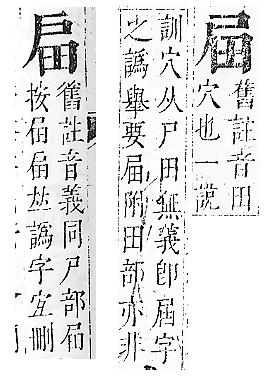 屇
舊註音田
穴也一説
訓穴从尸田無義卽屆字
之譌舉要屇附田部亦非
舊註音義同尸部屇
按屇𠀤譌字宜刪